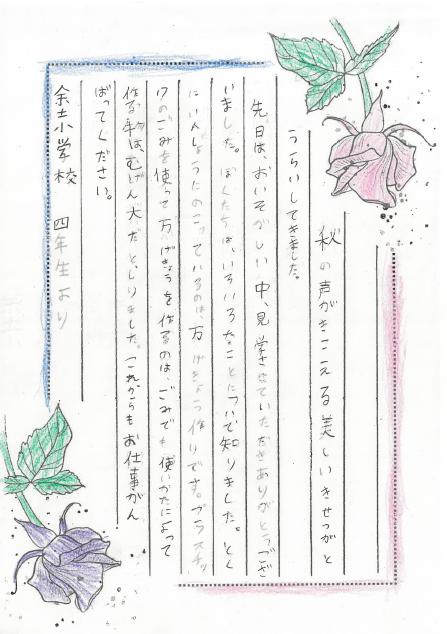 秋の声がきこえる美しいきせつがと
うらいしてきました。
先日は、おいそがしい中、見学させていただきありがとうござ
いました。ぼくたちは、いろいろなことについて知りました。とく
にいんしょうにのこっているのは、万げきょう作りです。プラスチッ
クのごみを使って万げきょうを作るのはごみでも使いかたによって
作る物は、むげん大だとしりました。これからもお仕事がん
ばってください。
余土小学校 四年生より